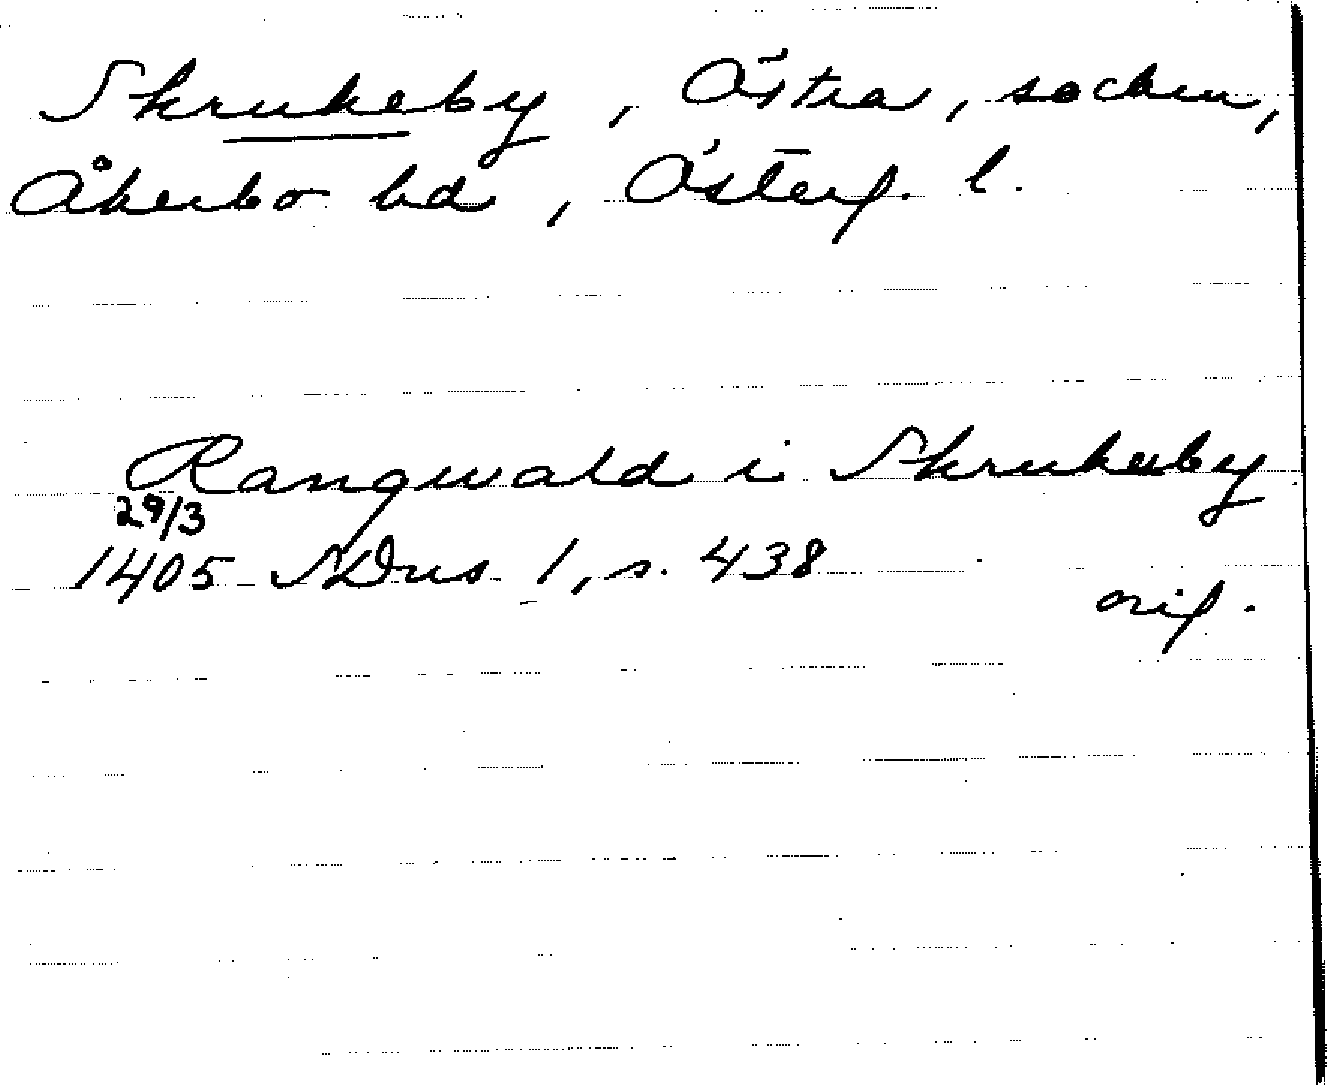 Skrukeby, Östra, socken,
Åkerbo hd, Österg. l.
Rangwald i Skrukeby
29/3
1405 SDns 1, s. 438
orig.